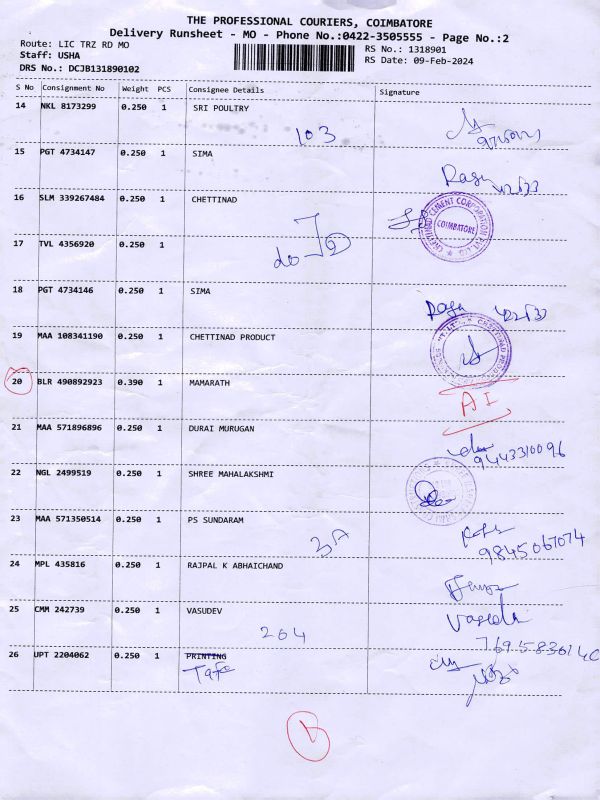 THE PROFESSIONAL COURIERS, COIMBATORE
Delivery Runsheet - MO - Phone No.:0422-3505555 - Page No.:2
Route: LIC TRZ RD MO
RS No.: 1318901
Staff: USHA
RS Date: 09-Feb-2024
DRS No.: DCJB131890102
S No Consignment No Weight PCS Consignee Details Signature
14 NKL 8173299 0.250 1 SRI POULTRY
103
15 PGT 4734147 0.250 1 SIMA
Raju 422133
16 SLM 339267484 0.250 1 CHETTINAD
CHETTINAD CEMENT CORPORATION PVT. LTD.
COIMBATORE
17 TVL 4356920 0.250 1
do
18 PGT 4734146 0.250 1 SIMA
Raju
19 MAA 108341190 0.250 1 CHETTINAD PRODUCT
20 BLR 490892923 0.390 1 MAMARATH
AI
21 MAA 571896896 0.250 1 DURAI MURUGAN
9443310096
22 NGL 2499519 0.250 1 SHREE MAHALAKSHMI
23 MAA 571350514 0.250 1 PS SUNDARAM
3A
9845067074
24 MPL 435816 0.250 1 RAJPAL K ABHAICHAND
25 CMM 242739 0.250 1 VASUDEV
Vasudev
204
26 UPT 2204062 0.250 1 PRINTING
Tafe